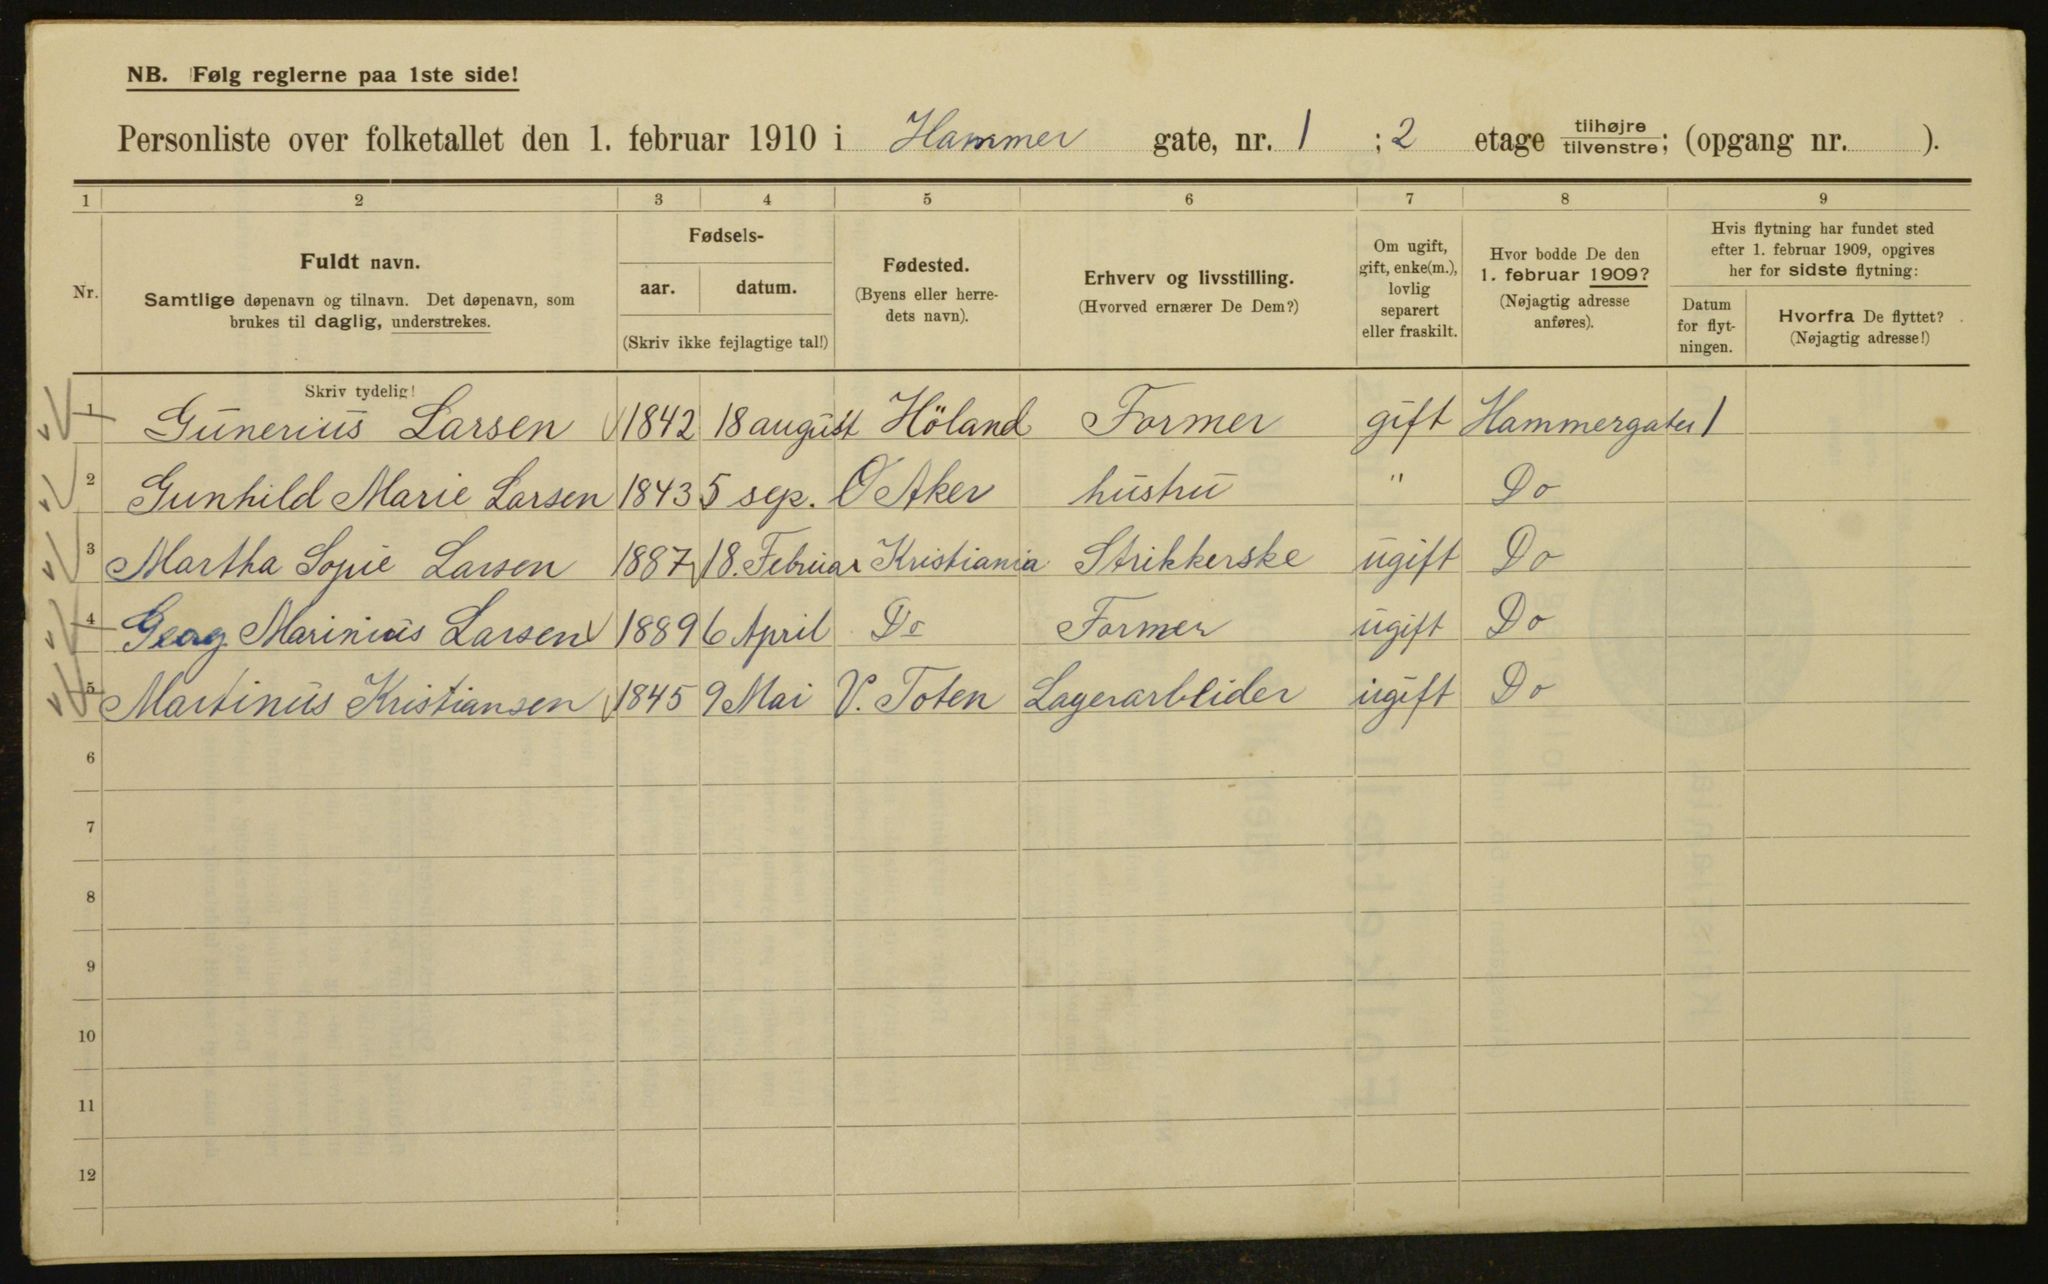 NB. Følg reglerne paa 1ste side!
Personliste over folketallet den 1. februar 1910 i Hammer gate, nr. 1 ; 2 etage tilhøjre tilvenstre; (opgang nr. ).
1 2 3 4 5 6 7 8 9
Nr.
Fuldt navn.
Samtlige døpenavn og tilnavn. Det døpenavn, som
brukes til daglig, understrekes.
Fødsels-
aar. datum.
(Skriv ikke fejlagtige tal!)
Fødested.
(Byens eller herre-
dets navn).
Erhverv og livsstilling.
(Hvorved ernærer De Dem?)
Om ugift,
gift, enke(m.),
lovlig
separert
eller fraskilt.
Hvor bodde De den
1. februar 1909?
(Nøjagtig adresse
anføres).
Hvis flytning har fundet sted
efter 1. februar 1909, opgives
her for sidste flytning:
Datum
for flyt-
ningen.
Hvorfra De flyttet?
(Nøjagtig adresse!)
Skriv tydelig!
1 Gunerius Larsen 1842 18 august Höland Former gift Hammergaten 1
2 Gunhild Marie Larsen 1843 5 sep. Ø Aker hustru " Do
3 Martha Sopie Larsen 1887 18. Februar Kristiania Strikkerske ugift Do
4 Georg Marinius Larsen 1889 6 April Do Former ugift Do
5 Martinus Kristiansen 1845 9 Mai V. Toten Lagerarbeider ugift Do
6
7
8
9
10
11
12